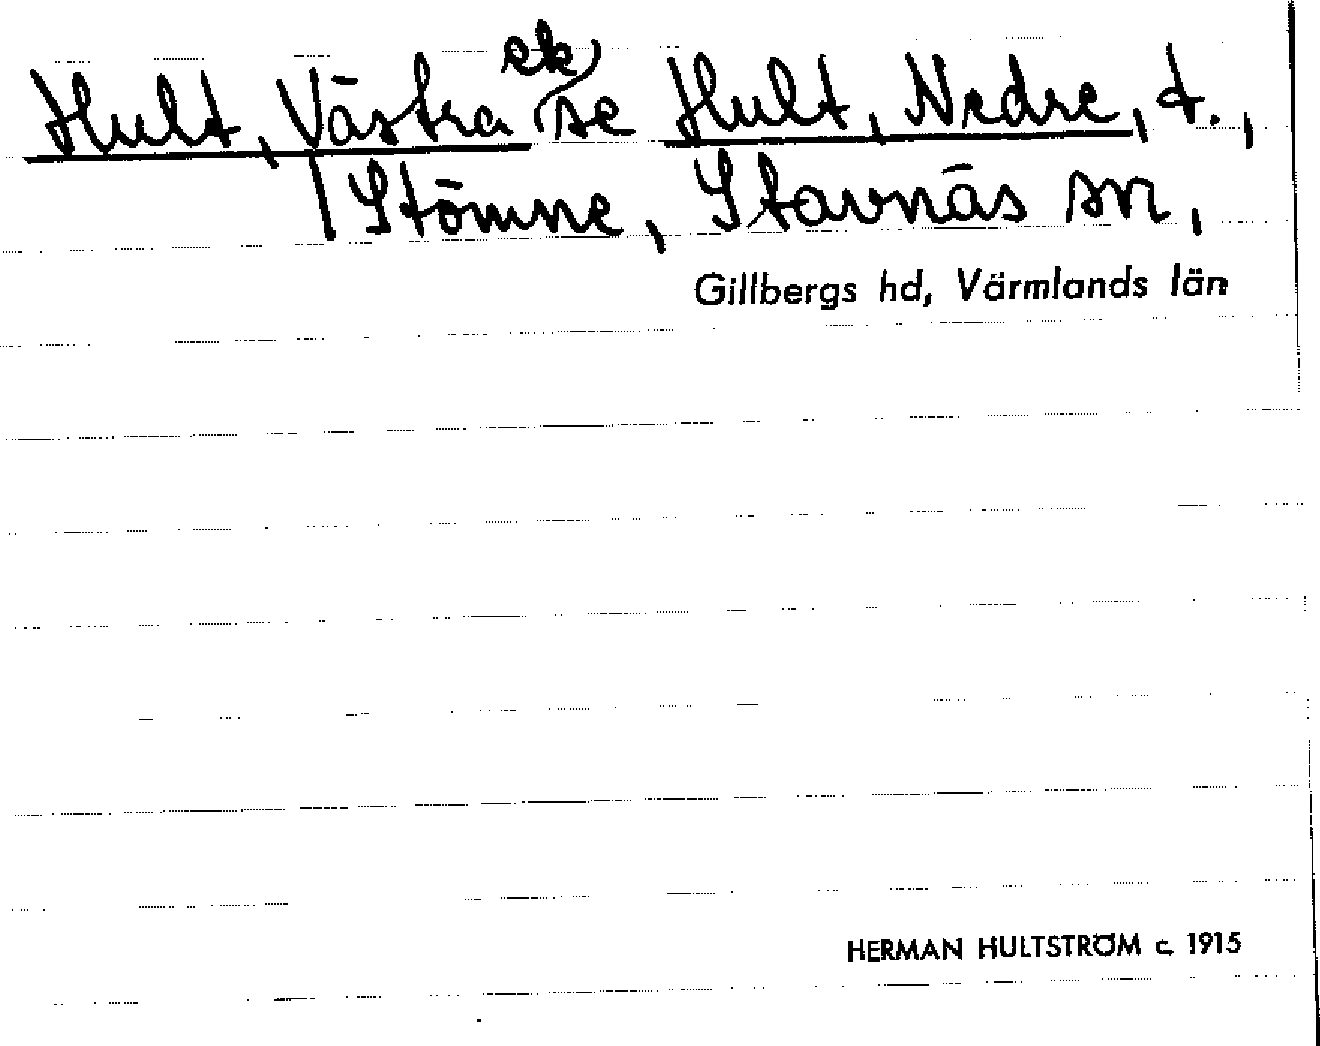 Hult, Västra ek se Hult, Nedre, t.,
Stömne, Stavnäs sn,
Gillbergs hd, Värmlands län
HERMAN HULTSTRÖM c. 1915